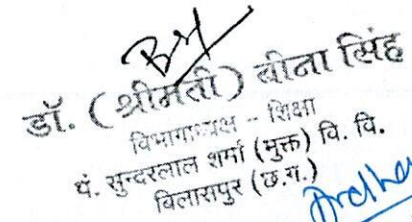 डॉ. (श्रीमती) बीना सिंह
विभागाध्यक्ष - शिक्षा
पं. सुन्दरलाल शर्मा (मुक्त) वि. वि.
बिलासपुर (छ.ग.)